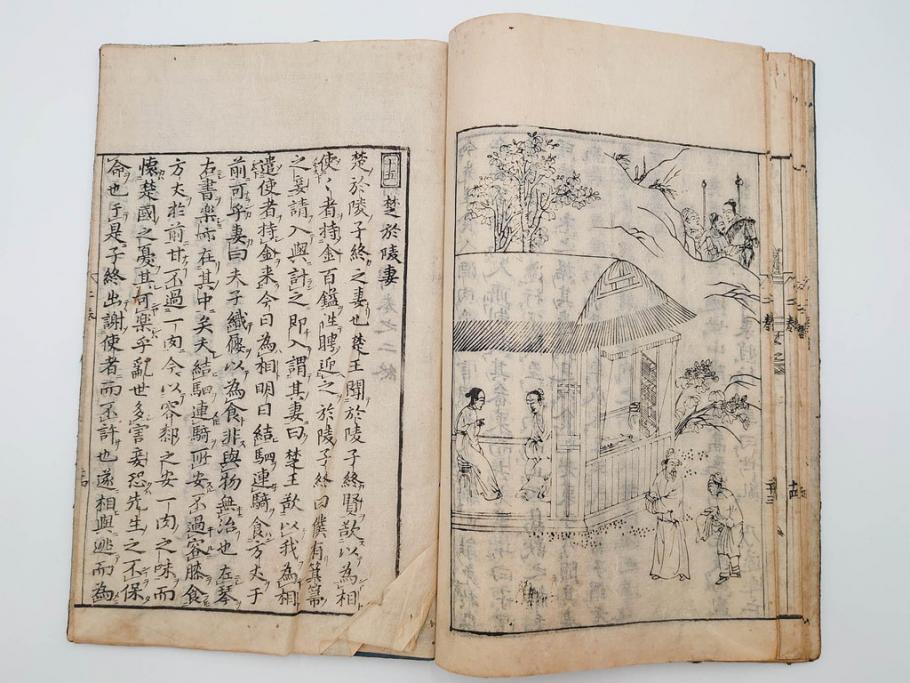 十五 楚於陵妻
楚於陵子終之妻也楚王聞於陵子終賢欲以為相
使〻者持金百鎰往聘迎之於陵子終曰僕有箕箒
之妾請入與計之即入謂其妻曰楚王欲以我為相
遣使者持金来今日為相明日結駟連騎食方丈于
前可乎妻曰夫子織屨以為食非與物無治也左琴
右書楽亦在其中矣夫結駟連騎所安不過容膝食
方丈於前甘不過一肉今以容厀之安一肉之味而
懐楚國之憂其何楽乎亂世多害妾恐先生之不保
命也于是子終出謝使者而不許也遂相與逃而為